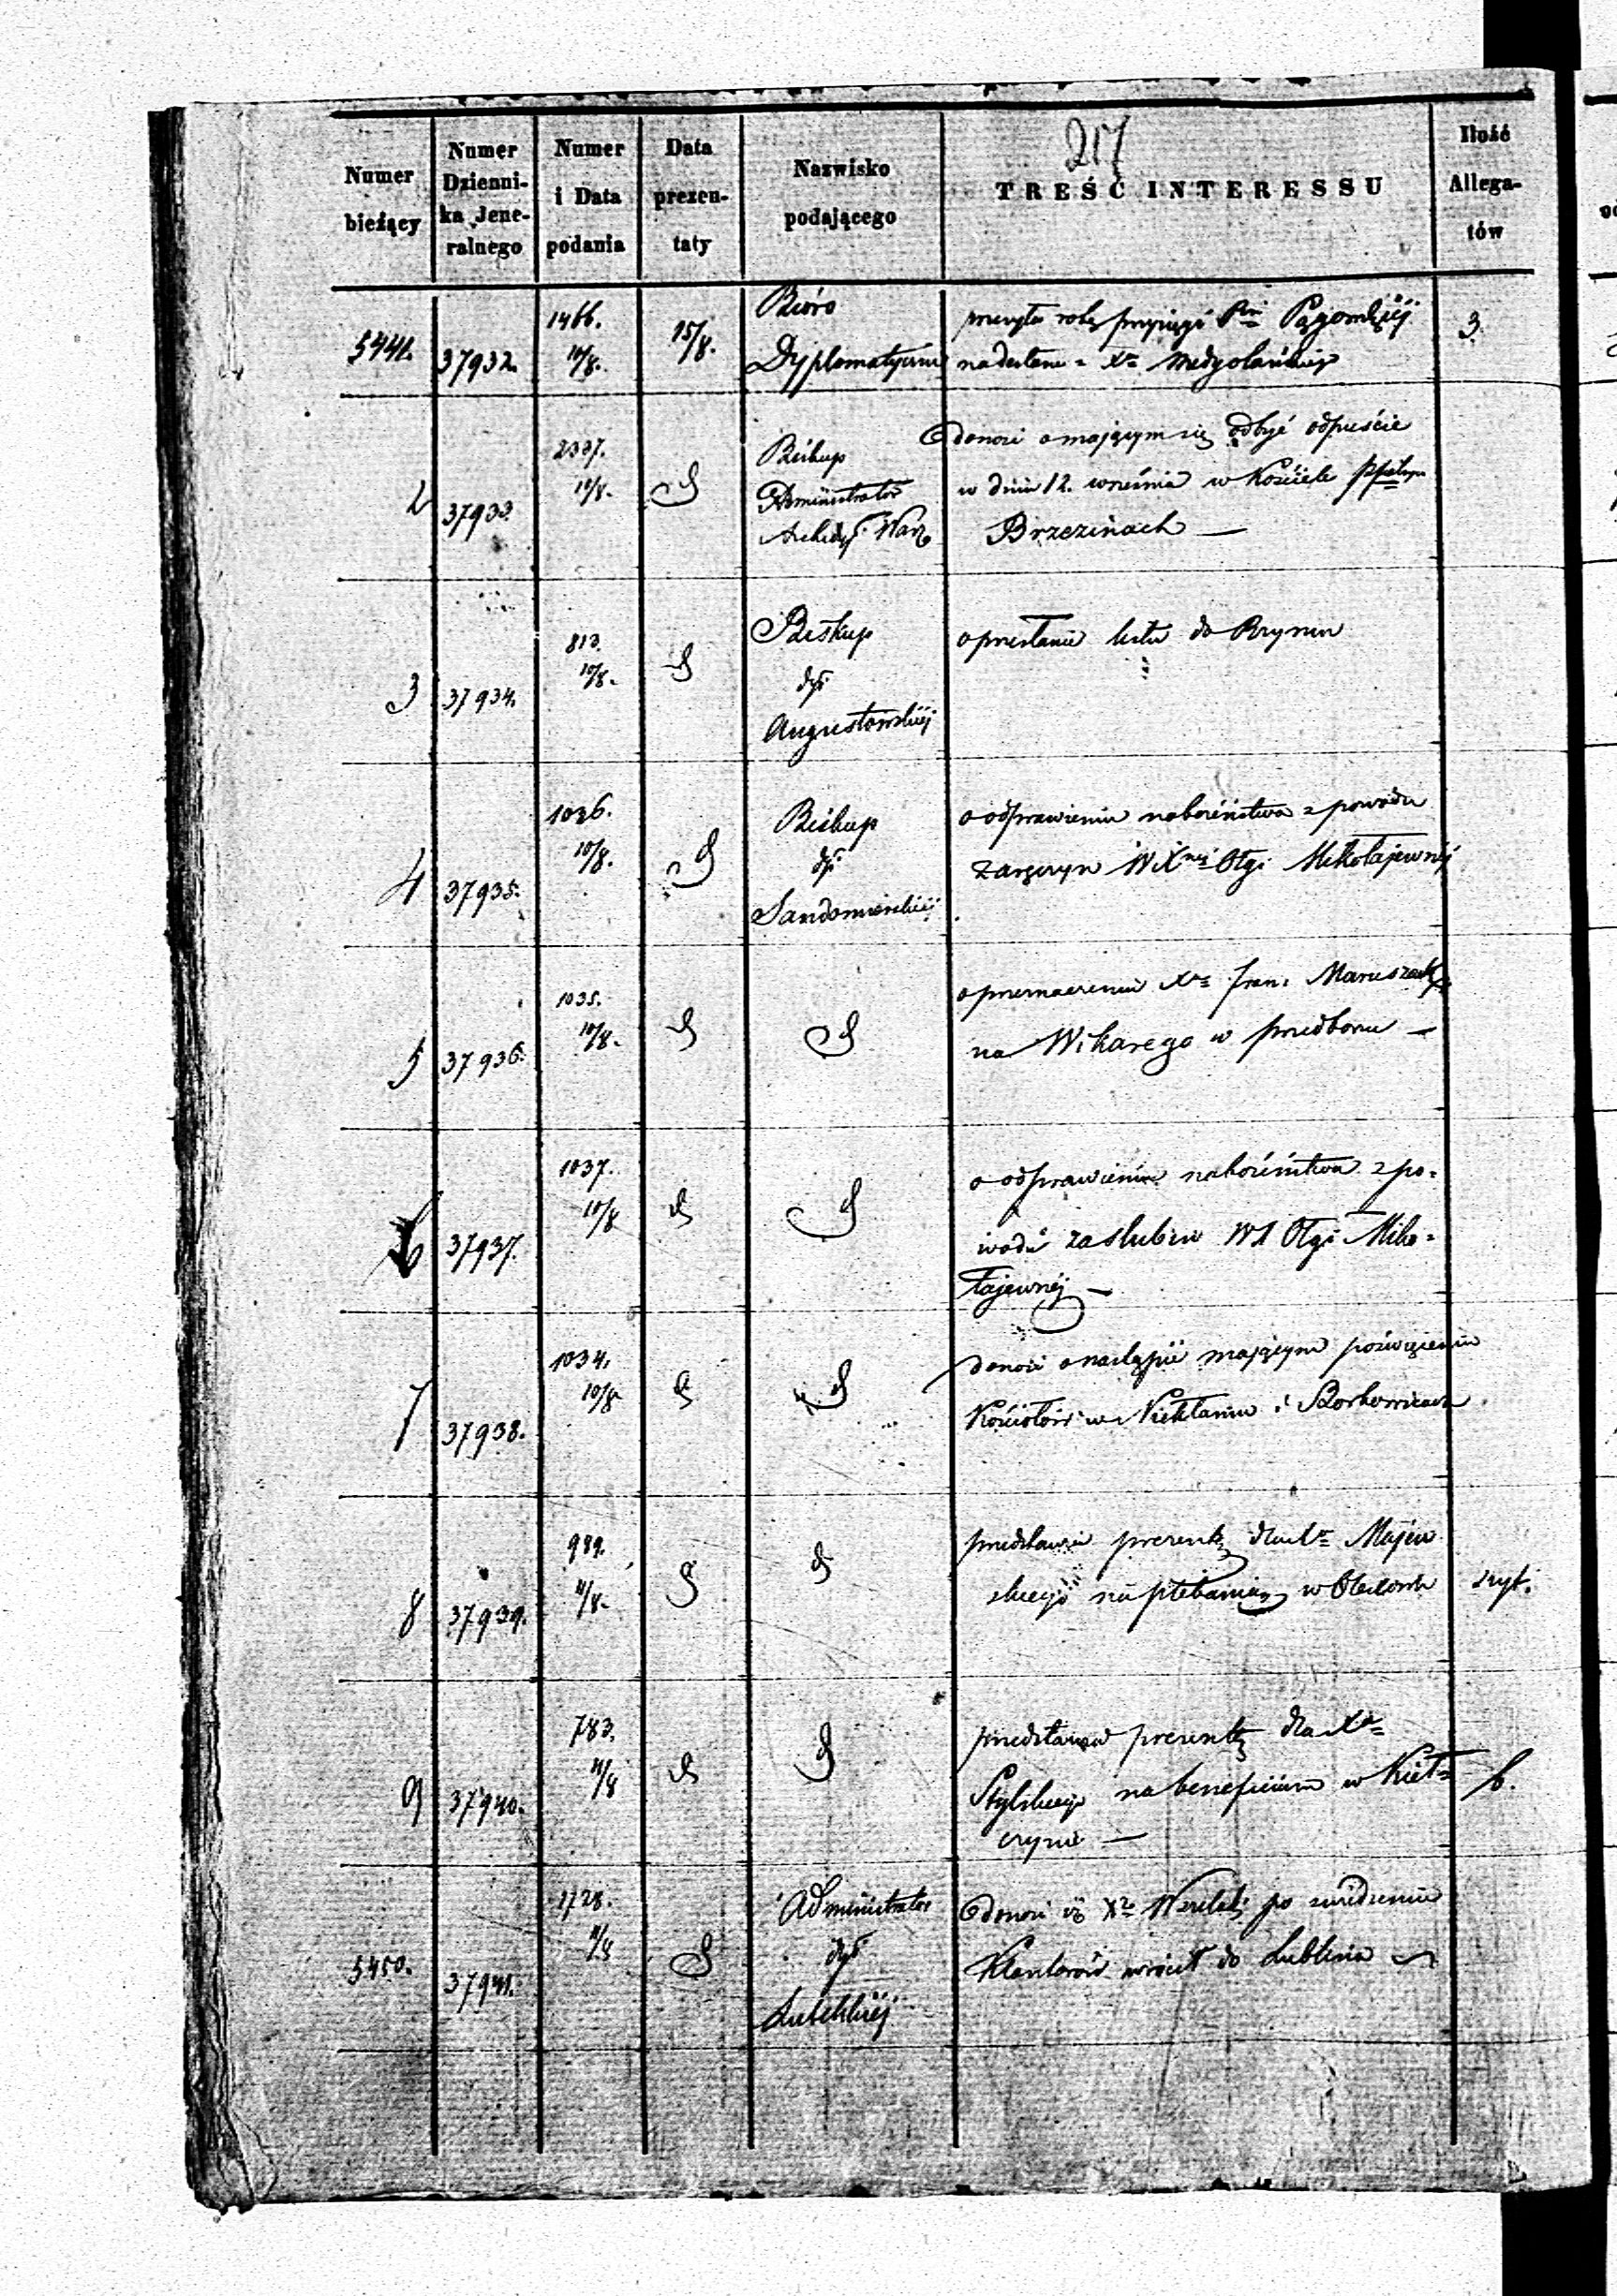 217
Numer bieżący
Numer Dzienni-ka Jene-ralnego
Numer i Data podania
Data prezen-taty
Nazwisko podającego
TREŚĆ INTERESSU
Ilość Allega-tów
5441. 37932. 1466. 10/8. 15/8. Bióro
Dyplomatyczne
przysięgi
nadesłane Medyolańskiego
3
2 37933. 2337. 10/8. Biskup
Administrator
Archidyi Warz
donosi o mającym się odbyć odpuście
w dniu 12. września w Kościele
Brzezinach —
3 37934. 813. 10/8. Biskup
dyi
Augustowskiéj
o przesłanie listu do Rzymu
4 37935. 1036. 10/8. Biskup
dyi
Sandomierskiéj
o odprawieniu nabożeństwa z powodu
zaręczyn WXnéj Olgi Mikołajewnéj
5 37936. 1035. 10/8.
o przeznaczeniu Xa Fran.
na Wikarego w Przedborzu —
6 37937. 1037. 10/8
o odprawieniu nabożeństwa z po=
wodu zaślubin Olgi Miko=
łajewnéj —
7 37938. 1034. 10/8
donosi o nastąpić mającym poświęceniu
Kościołów w Niekłaniu i Borkowicach
8 37939. 989. 11/8.
przedstawia prezentę dla Xa Majew
skiego na plebanią w
szyt.
9 37940. 783. 11/8
przedstawia prezentę dla Xa
na beneficium w Kieł=
czynie —
6.
5450. 37941. 1728. 11/8 Administrator
dyi
Lubelskiéj
donosi iż Xdz po zwidzeniu
Klasztorów wrócił do Lublina